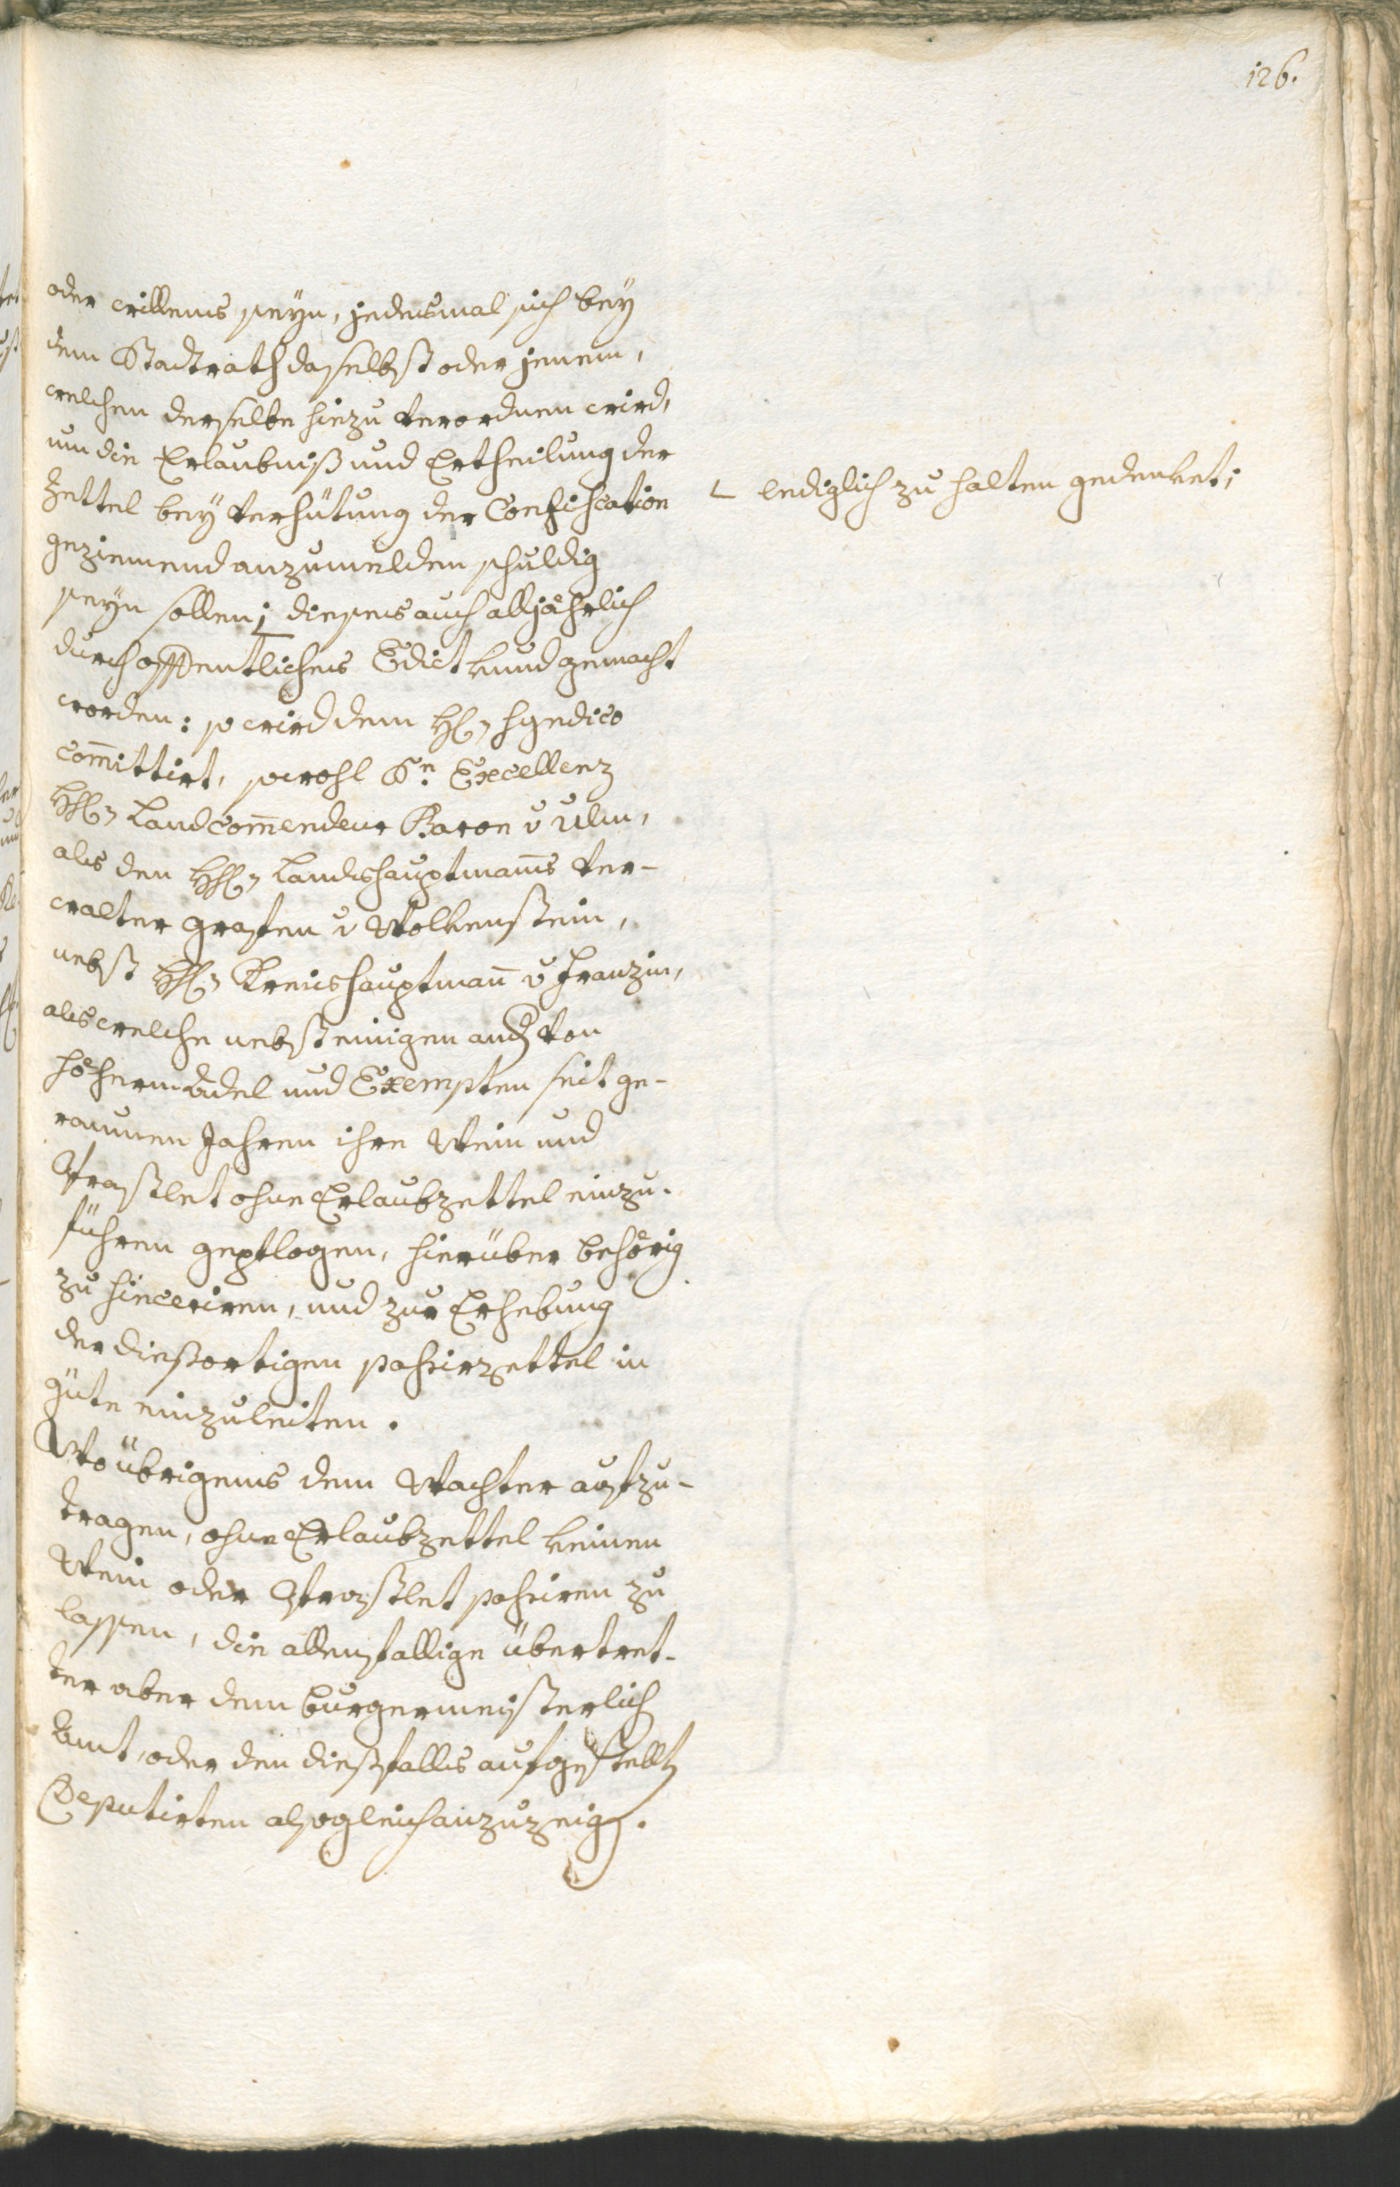 126.
oder willens seyn, jedesmal sich bey
dem Stadtrath daselbst oder jenem,
welchen derselbe hiezu verordnen wird,
um die Erlaubniß und Ertheilung der
Zettel bey Verhütung der Confiscation
geziemend anzumelden schuldig
seyn sollen; dieses auch alljährlich
durch offentliches Edict kund gemacht
worden: so wird dem H: Syndico
com̄ittirt, sowohl Sr. Excellenz
H: Landcom̄endeur Baron v Ulm,
als den H: Landshauptman̄s Ver-
walter Grafen v Wolkenstein,
nebst H: Kreishauptman̄ v Franzin,
als welche nebst einigen and von
höherm Adel und Exempten seit ge-
raumen Jahren ihre Wein und
Praschlet ohne Erlaubzettel einzu-
führen gepflogen, hierüber behörig
zu sinceriren, und zur Erhebung
der dießortigen passirzettel in
Güte einzuleiten.
Wo übrigens dem Wachter aufzu-
tragen, ohne Erlaubzettel keinen
Wein oder Praschlet passiren zu
lassen, die allenfallige übertret-
ter aber dem burgermeisterlich
Amt, oder den dießfalls aufgestellt
Deputirten alsogleich anzuzeig.
lediglich zu halten gedenket;